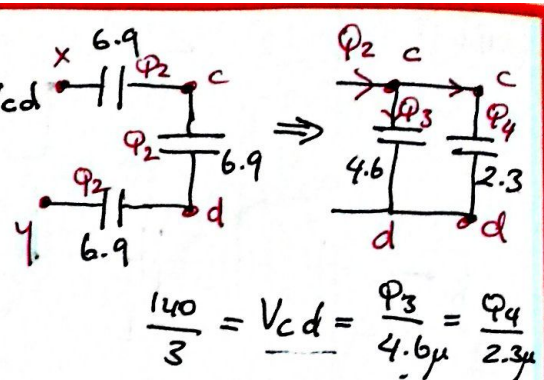 6.9
x Q2 c
cd
Q2 6.9
Q2
y. 6.9 d
⇒
Q2 c c
Q3 Q4
4.6 2.3
d d
140/3 = Vcd = Q3/4.6μ = Q4/2.3μ